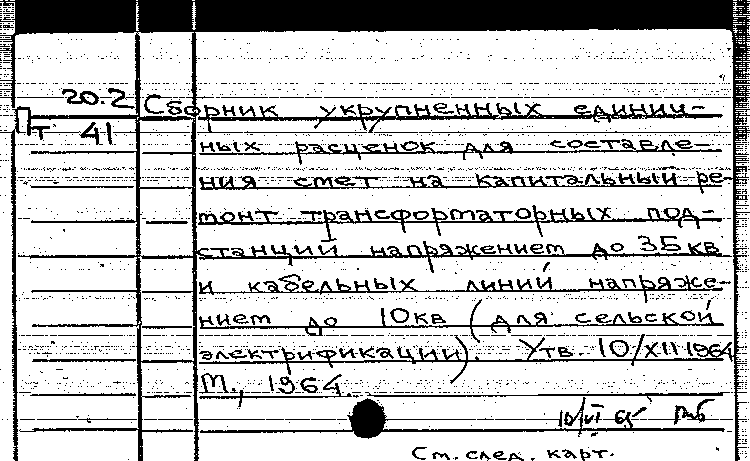 20.2 Сборник укрупненных единич-
Т 41
ных расценок для составле-
ния смет на капитальный ре-
монт трансформаторных под-
станций напряжением до 35 кв
и кабельных линий напряже-
нием до 10 кв (для сельской
электрификации). Утв. 10/XII 1964
М., 1964.
10/VI 65
См. след. карт.